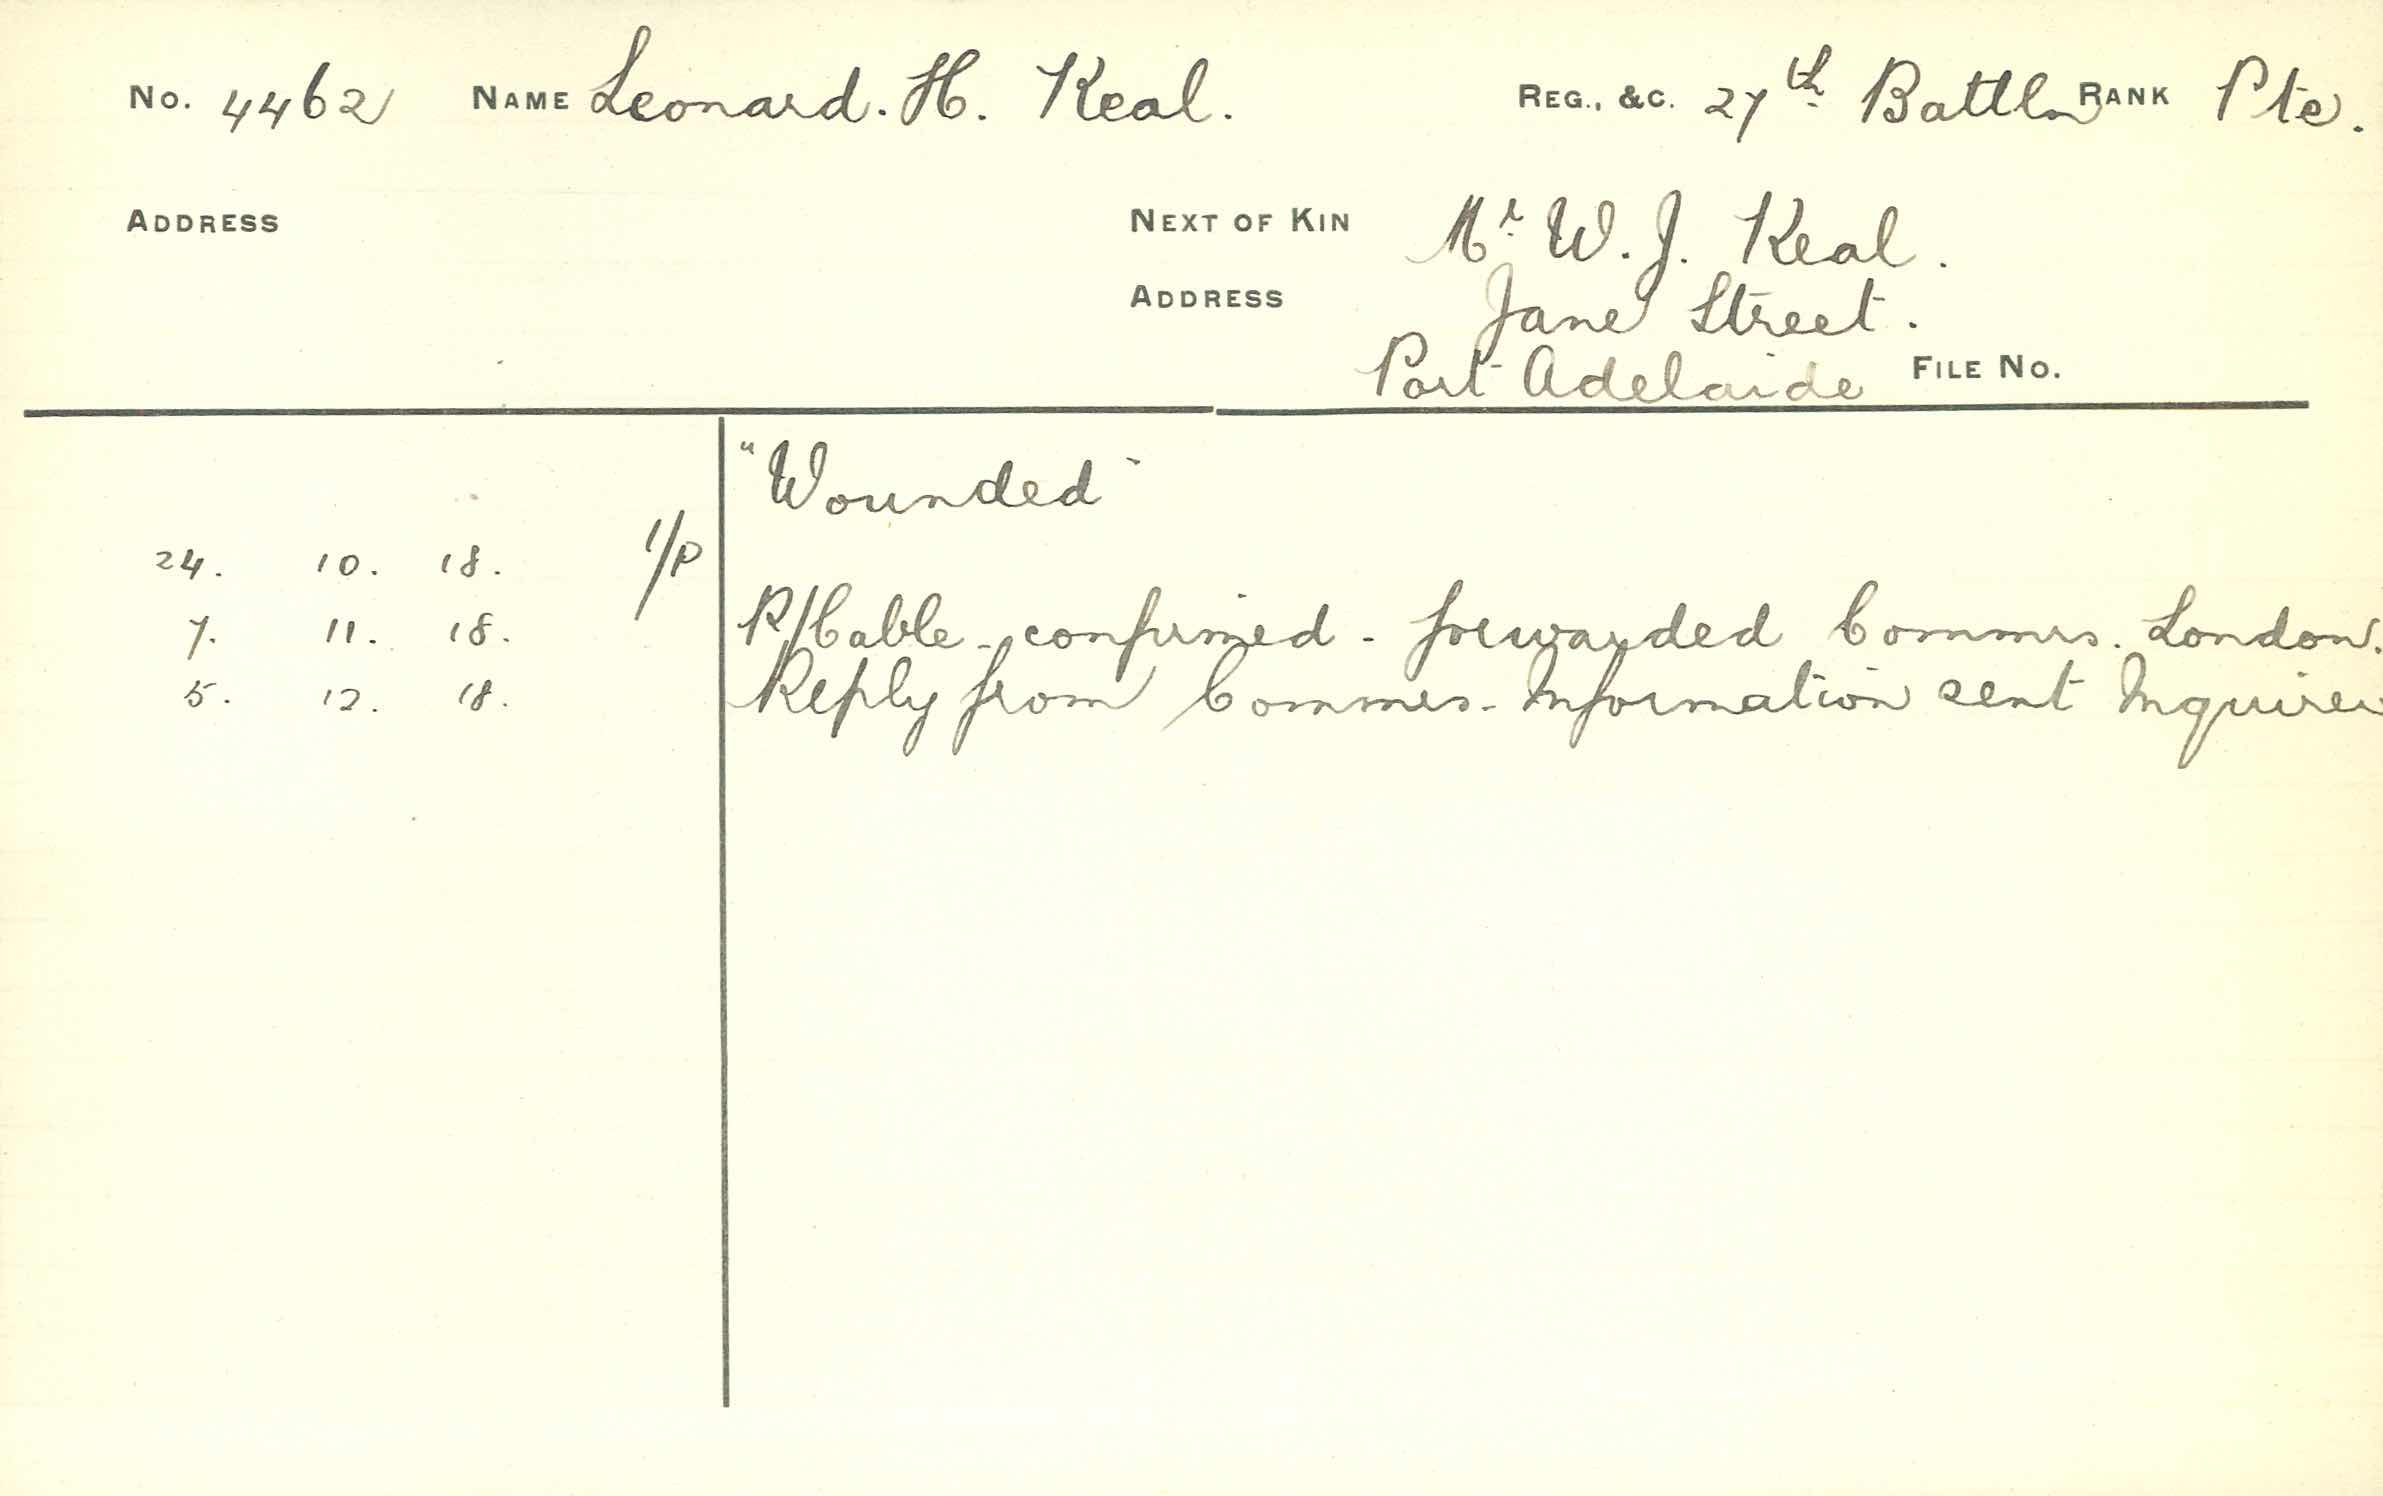 No. 4462 NAME Leonard. H. Keal. REG., &C. 27th Battln RANK Pte.
ADDRESS NEXT OF KIN Mr W. J. Keal.
ADDRESS Jane Street.
Port Adelaide FILE No.
"Wounded"
24. 10. 18. 1/P
7. 11. 18. R/Cable - confirmed - forwarded Commrs. London.
5. 12. 18. Reply from Commrs. Information sent Inquirer